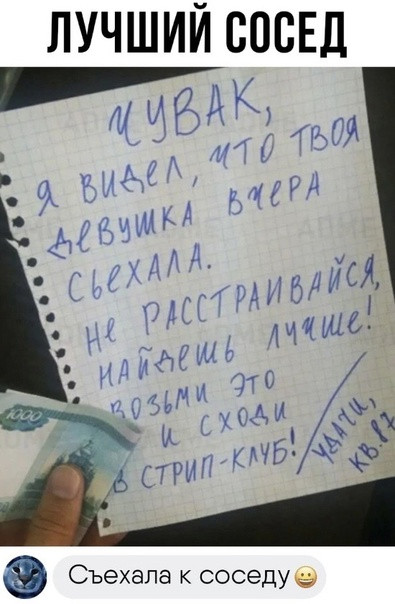 ЛУЧШИЙ СОСЕД
ЧУВАК,
Я ВИДЕЛ, ЧТО ТВОЯ
ДЕВУШКА ВЧЕРА
СЬЕХАЛА.
НЕ РАССТРАИВАЙСЯ,
НАЙДЕШЬ ЛУЧШЕ!
ВОЗЬМИ ЭТО
И СХОДИ
В СТРИП-КЛУБ!
УДАЧИ,
КВ.87
1000
Съехала к соседу😀